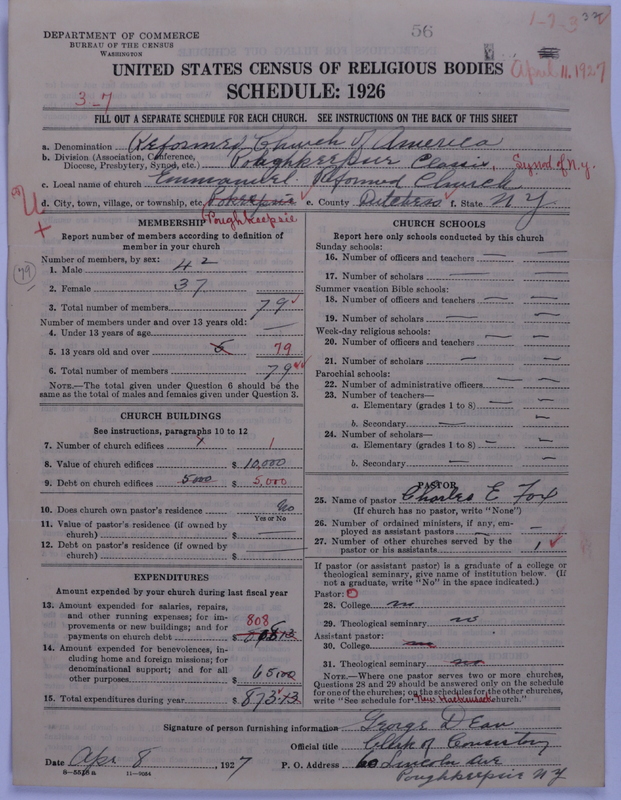 56
1-2-3
DEPARTMENT OF COMMERCE
BUREAU OF THE CENSUS
WASHINGTON
UNITED STATES CENSUS OF RELIGIOUS BODIES
April 11, 1927
SCHEDULE: 1926
3-7
FILL OUT A SEPARATE SCHEDULE FOR EACH CHURCH. SEE INSTRUCTIONS ON THE BACK OF THIS SHEET
a. Denomination Reformed Church of America
b. Division (Association, Conference, Diocese, Presbytery, Synod, etc.) Poughkeepsie Classis, Synod of N.Y.
c. Local name of church Emmanuel Reformed Church
d. City, town, village, or township, etc. Pokeepsie Poughkeepsie e. County Dutchess f. State N Y
MEMBERSHIP
Report number of members according to definition of
member in your church
79
Number of members, by sex:
1. Male 42
2. Female 37
3. Total number of members 79
Number of members under and over 13 years old:
4. Under 13 years of age —
5. 13 years old and over 79
6. Total number of members 79
NOTE.—The total given under Question 6 should be the
same as the total of males and females given under Question 3.
CHURCH BUILDINGS
See instructions, paragraphs 10 to 12
7. Number of church edifices 1
8. Value of church edifices $ 10,000
9. Debt on church edifices 5000 $ 5,000
10. Does church own pastor's residence No
Yes or No
11. Value of pastor's residence (if owned by
church) $ —
12. Debt on pastor's residence (if owned by
church) $ —
EXPENDITURES
Amount expended by your church during last fiscal year
13. Amount expended for salaries, repairs,
and other running expenses; for im-
provements or new buildings; and for
payments on church debt $ 808
14. Amount expended for benevolences, in-
cluding home and foreign missions; for
denominational support; and for all
other purposes $ 65 00
15. Total expenditures during year $ 873
CHURCH SCHOOLS
Report here only schools conducted by this church
Sunday schools:
16. Number of officers and teachers —
17. Number of scholars —
Summer vacation Bible schools:
18. Number of officers and teachers —
19. Number of scholars —
Week-day religious schools:
20. Number of officers and teachers —
21. Number of scholars —
Parochial schools:
22. Number of administrative officers —
23. Number of teachers—
a. Elementary (grades 1 to 8) —
b. Secondary —
24. Number of scholars—
a. Elementary (grades 1 to 8) —
b. Secondary —
PASTOR
25. Name of pastor Charles E Fox
(If church has no pastor, write "None")
26. Number of ordained ministers, if any, em-
ployed as assistant pastors —
27. Number of other churches served by the
pastor or his assistants 1
If pastor (or assistant pastor) is a graduate of a college or
theological seminary, give name of institution below. (If
not a graduate, write "No" in the space indicated.)
Pastor:
28. College no
29. Theological seminary no
Assistant pastor:
30. College no
31. Theological seminary no
NOTE.—Where one pastor serves two or more churches,
Questions 28 and 29 should be answered only on the schedule
for one of the churches; on the schedules for the other churches,
write "See schedule for New Hackensack church."
Signature of person furnishing information George D Ean
Official title Clerk of Consistory
Date Apr 8, 1927 P. O. Address 60 Lincoln Ave
8—5518 a 11—9034 Poughkeepsie N Y